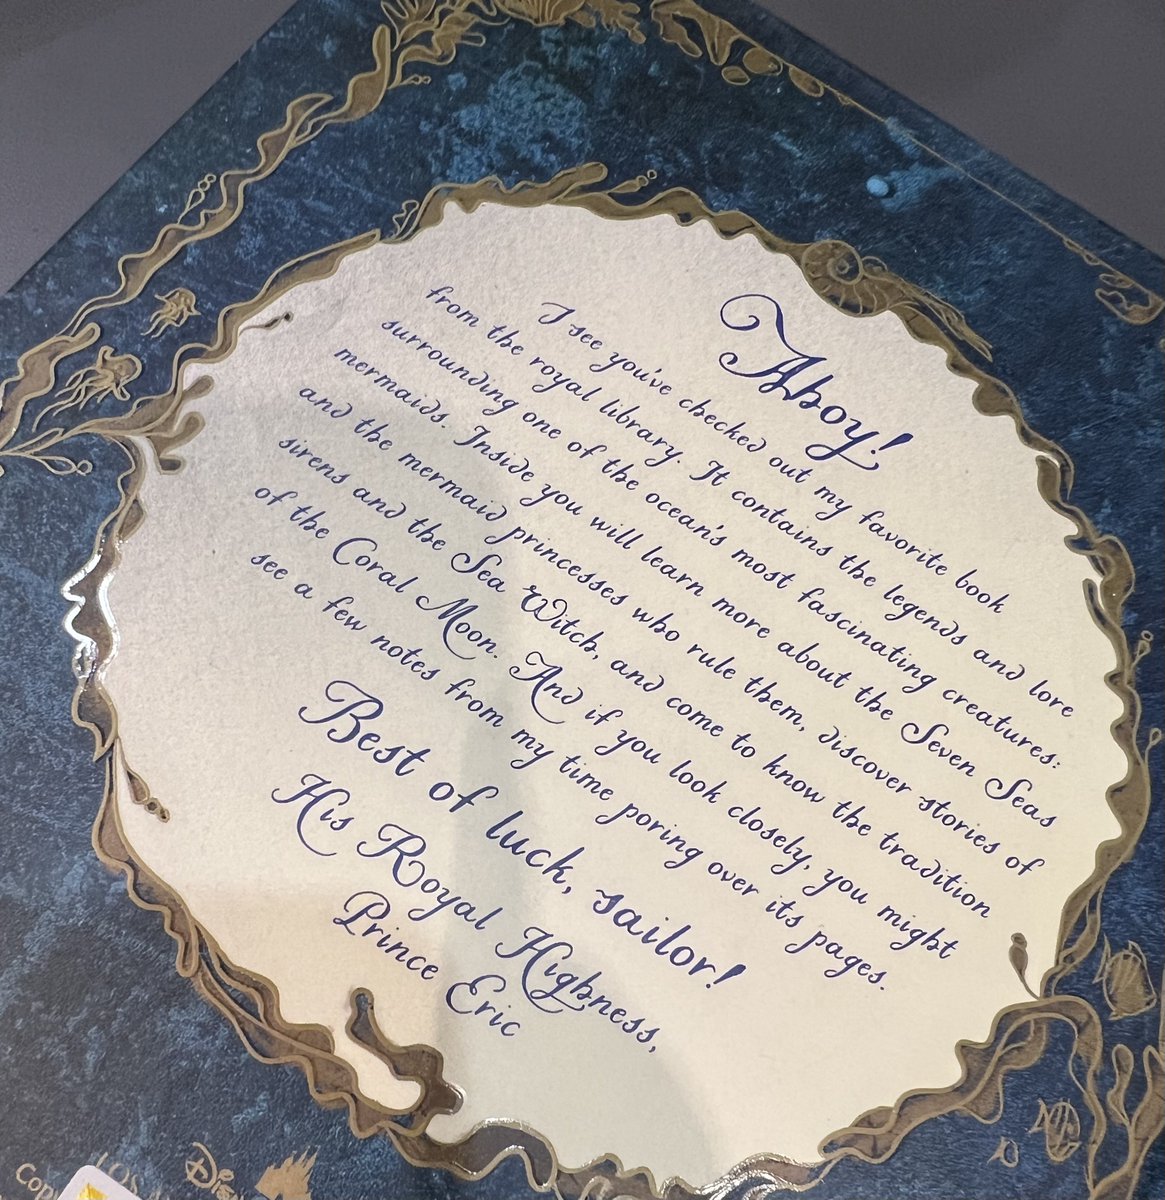 Ahoy!
I see you've checked out my favorite book
from the royal library. It contains the legends and lore
surrounding one of the ocean's most fascinating creatures:
mermaids. Inside you will learn more about the Seven Seas
and the mermaid princesses who rule them, discover stories of
sirens and the Sea Witch, and come to know the tradition
of the Coral Moon. And if you look closely, you might
see a few notes from my time poring over its pages.
Best of luck, sailor!
His Royal Highness,
Prince Eric